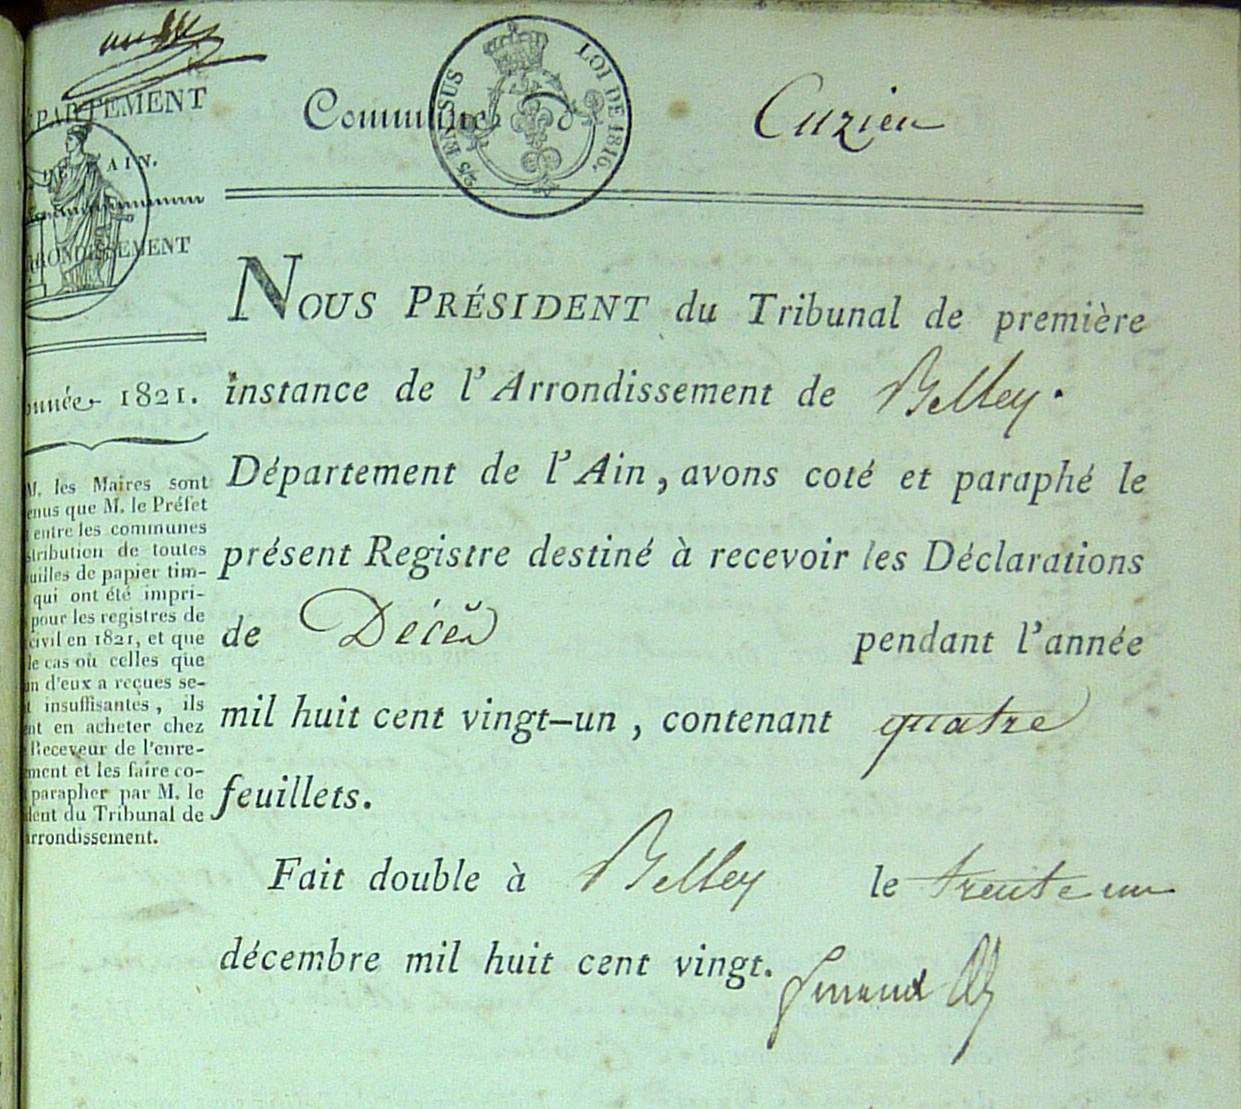 Commune d Cuzieu
2/5 EN SUS
LOI DE 1816.
PARTEMENT
DE L'AIN.
RRONDISSEMENT
nnée 1821.
M. les Maires sont
enus que M. le Préfet
entre les communes
stribution de toutes
uilles de papier tim-
qui ont été impri-
pour les registres de
civil en 1821, et que
le cas où celles que
un d'eux a reçues se-
t insuffisantes, ils
nt en acheter chez
Receveur de l'enre-
ment et les faire co-
parapher par M. le
dent du Tribunal de
rrondissement.
NOUS PRÉSIDENT du Tribunal de première
instance de l'Arrondissement de Belley.
Département de l'Ain, avons coté et paraphé le
présent Registre destiné à recevoir les Déclarations
de Décès pendant l'année
mil huit cent vingt-un, contenant quatre
feuillets.
Fait double à Belley le trente un
décembre mil huit cent vingt.